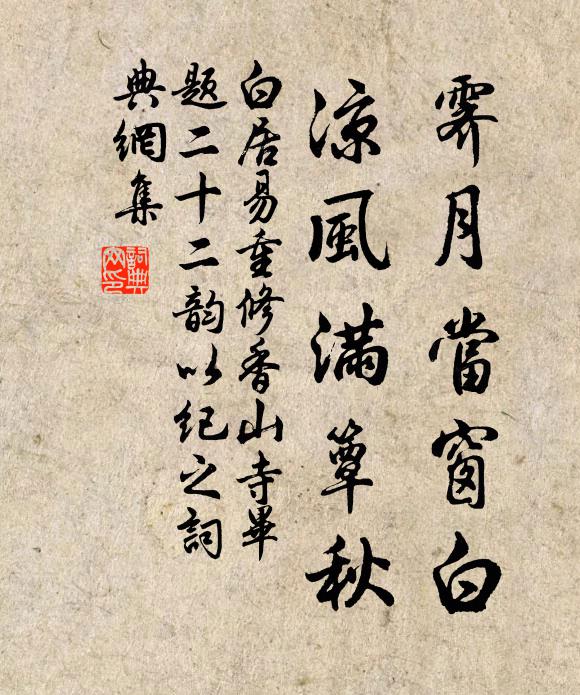 霽月當窗白
涼風滿簟秋
白居易重修香山寺畢
題二十二韵以紀之詞
典網集
詞典網印